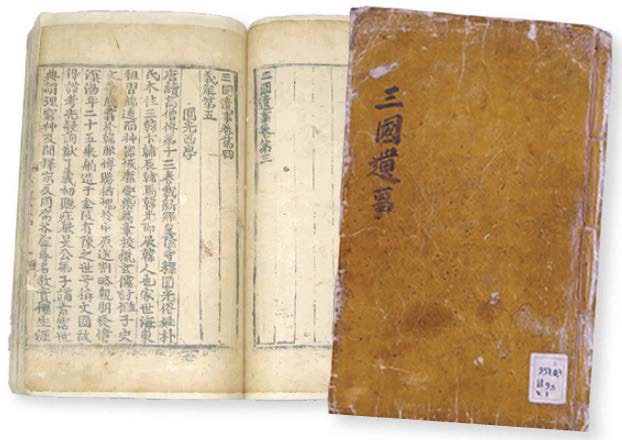 三國遺事
三國遺事卷第三
三國遺事卷第四
義解第五
圓光西學
唐續高僧傳第十三卷載新羅皇隆寺釋圓光俗姓朴
氏本住三韓卞韓辰韓馬韓光即辰韓人也家世海東
祖習綿遠而神器恢廓愛染篇章校獵玄儒討讎子史
文華騰翥於韓服博贍猶愧於中原遂割略親朋發憤
溟渤年二十五乘舶造于金陵有陳之世号稱文國故
得諮考先疑詢猷了義初聽莊嚴旻公弟子講素霑世
典謂理窮神及聞釋宗反同腐芥虛尋名教實懼生涯
V.1